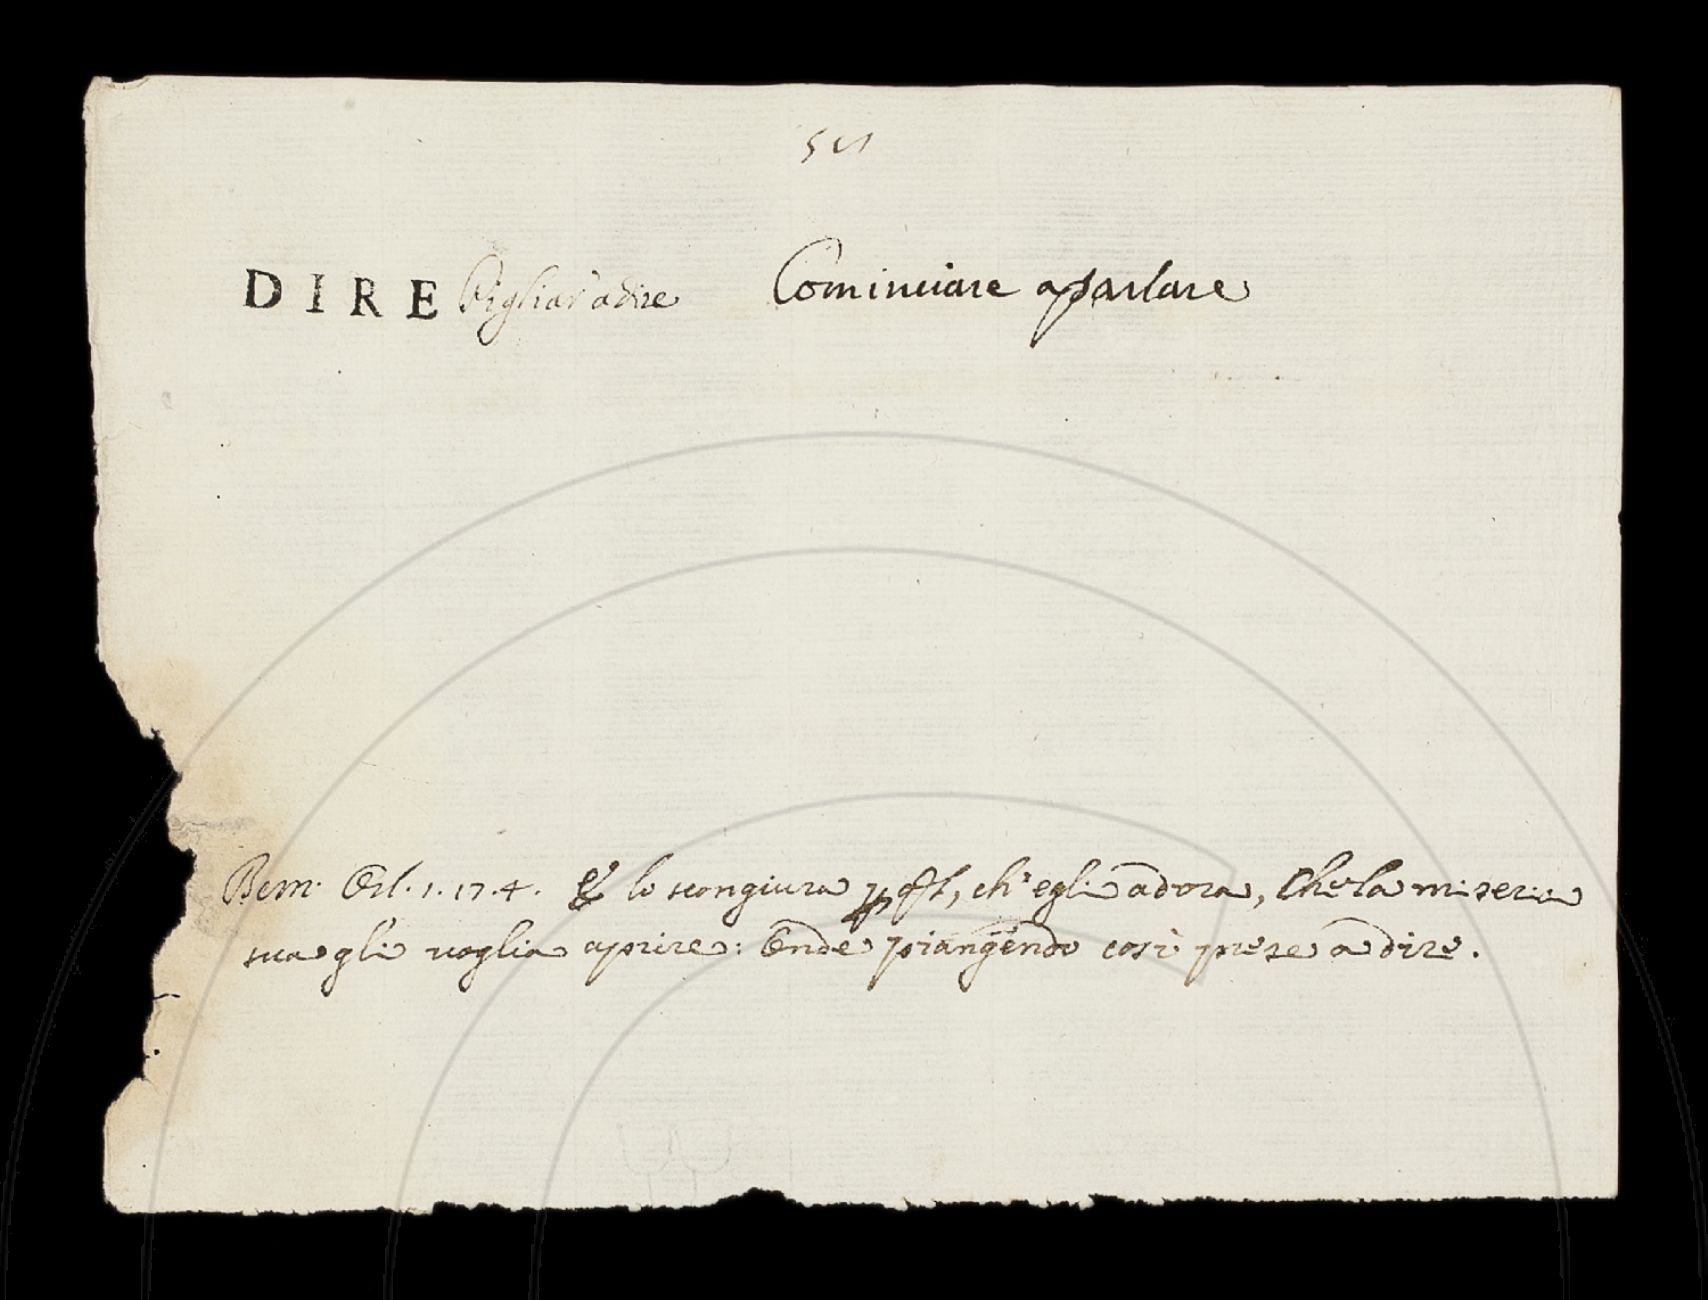 DIRE Pigliar' a dire Cominciare a parlare
Bern. Orl. 1. 17. 4. E lo scongiura p qst, ch' egli adora, Che la miseria
sua gli voglia aprire: Onde piangendo così prese a dire.